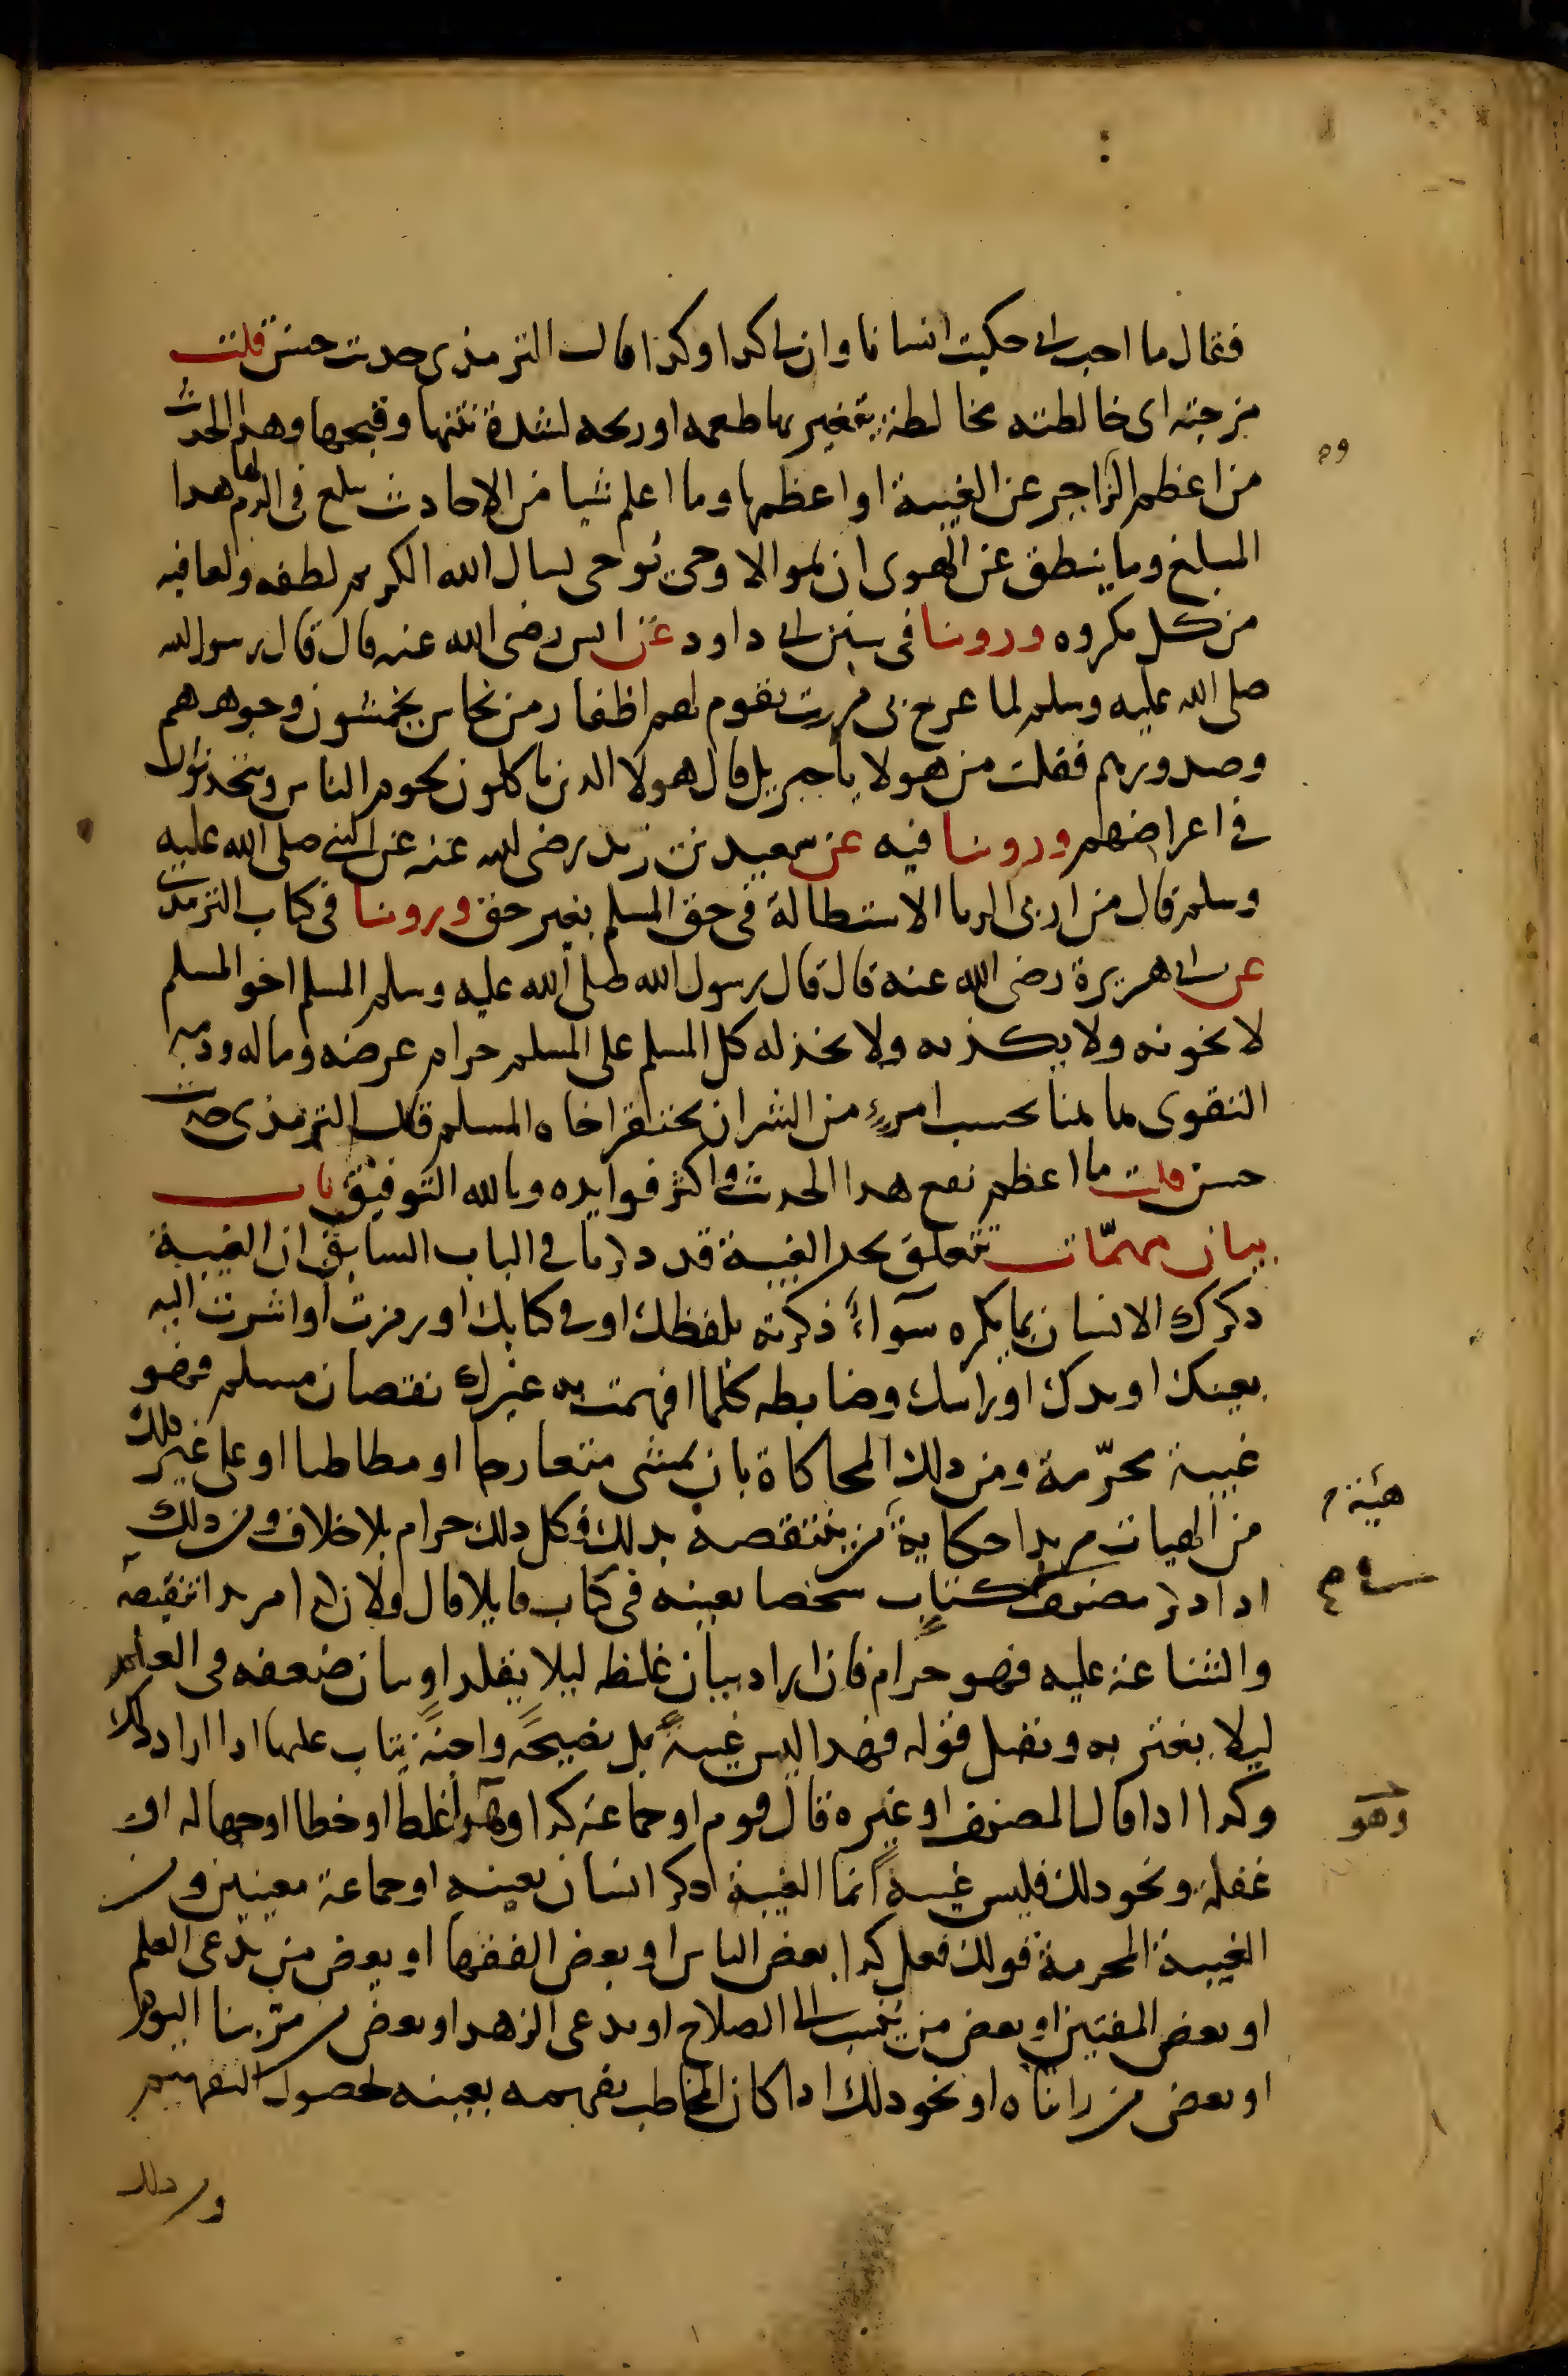 فقال ما احب اني حكيت انسانا وان لي كدا وكدا قال الترمذى حديث حسن قلت
مزجته اى خالطته مخالطة يتغير بها طعمه او ريحه لشدة نتنها وقبحها وهدا الحديث
من اعظم الزاجر عن الغيبة او اعظمها وما اعلم شيا من الاحاديث يبلغ فى الذم لها هدا
المبلغ وما ينطق عن الهوى ان هو الا وحى يوحى نسال الله الكريم لطفه والعافيه
من كل مكروه وروينا فى سنن ابي داود عن انس رضى الله عنه قال قال رسول الله
صلى الله عليه وسلم لما عرج بى مررت بقوم لهم اظفار من نحاس يخمشون وجوههم
وصدورهم فقلت من هولا يا جبريل قال هولا الدين ياكلون لحوم الناس ويتحدثون
فى اعراضهم وروينا فيه عن سعيد بن زيد رضى الله عنه عن النبي صلى الله عليه
وسلم قال من اربى الربا الاستطالة فى حق المسلم بغير حق وروينا فى كتاب الترمذي
عن ابي هريرة رضى الله عنه قال قال رسول الله صلى الله عليه وسلم المسلم اخو المسلم
لا يخونه ولا يكذبه ولا يخذله كل المسلم على المسلم حرام عرضه وماله ودمه
التقوى هاهنا بحسب امرء من الشر ان يحتقر اخاه المسلم قال الترمذى حديث
حسن قلت ما اعظم نفع هدا الحديث واكثر فوايده وبالله التوفيق باب
بيان مهمّات تتعلق بحد الغيبة قد دكرنا فى الباب السابق ان الغيبة
دكرك الانسان بما يكره سوآءً ذكرته بلفظك او في كتابك او رمزت او اشرت اليه
بعينك او يدك او راسك وضابطه كلما افهمت به غيرك نقصان مسلم فهو
غيبة محرّمة ومن دلك المحاكاة بان يمشى متعارجا او مطاطيا او على غير دلك
من الهيات مريدا حكاية من ينتقصه بدلك فكل دلك حرام بلا خلاف ومن دلك
ادا دكر مصنف كتاب شخصا بعينه فى كتاب قايلا قال فلان كدا مريدا تنقيصه
والشناعة عليه فهو حرام فان اراد بيان غلطه ليلا يقلد او بيان ضعفه فى العلم
ليلا يغتر به ويقبل قوله فهدا ليس غيبةً بل نصيحةً واجبةً يثاب عليها ادا اراد دلك
وكدا ادا قال المصنف او غيره قال قوم او جماعة كدا وهدا غلط او خطا او جهالة او
غفلة ونحو دلك فليس غيبةً انما الغيبة دكر انسان بعينه او جماعة معينين ومن
الغيبة المحرمة قولك فعل كدا بعض الناس او بعض الفقها او بعض من يدعى العلم
او بعض المفتين او بعض من ينسب الى الصلاح او يدعى الزهد او بعض من مرّ بنا اليوم
او بعض من رايناه او نحو دلك ادا كان المخاطب يفهمه بعينه لحصول التفهيم
هيئة
وهو
ومن دلك